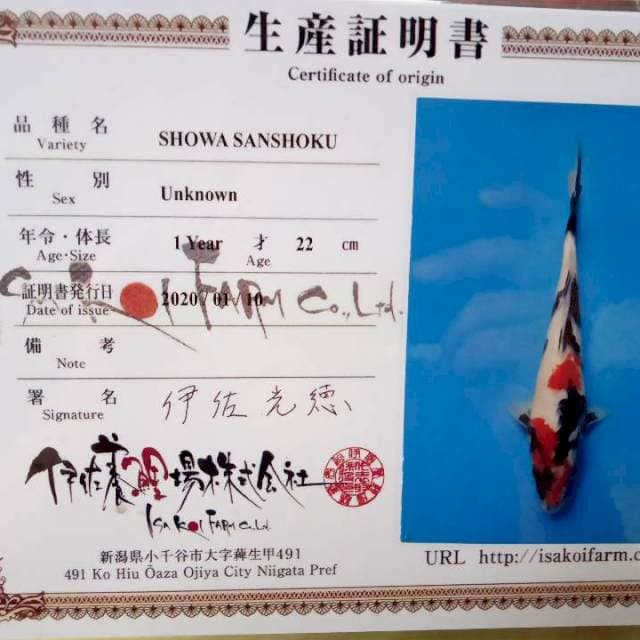 生産証明書
Certificate of origin
品種名
Variety
SHOWA SANSHOKU
性別
Sex
Unknown
年令・体長
Age・Size
1 Year 才 22 cm
Age
証明書発行日
Date of issue
2020 / 01 / 10
KOI FARM Co.,Ltd.
備考
Note
署名
Signature
伊佐光徳
伊佐養鯉場株式会社
ISA KOI FARM Co.,Ltd.
新潟県小千谷市大字薭生甲491
491 Ko Hiu Ōaza Ojiya City Niigata Pref
URL http://isakoifarm.c